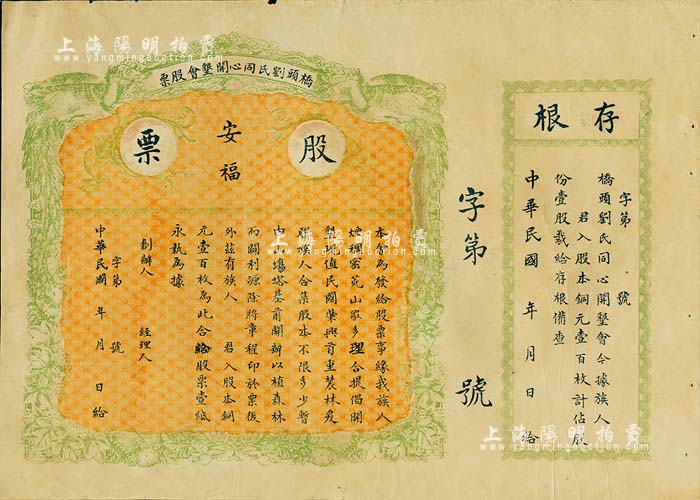 上海陽明拍賣
www.yangmingauction.com
上海陽明拍賣
www.yangmingauction.com
橋頭劉民同心開墾會股票
股
安福
票
本會為發給股票事緣我族人
煙稠密荒山最多理合提倡開
墾現值民國肇興首重農林爰
聯族人合集股本不限多少暫
由山場塔基前開辦以植森林
而闢利源除將章程印於票後
外茲有族人 君入股本銅
元壹百枚為此合給股票壹紙
永執為據
創辦人 經理人
字第 號
中華民國 年 月 日 給
字第 號
存根
字第 號
橋頭劉氏同心開墾會今據族人
君入股本銅元壹百枚計佔股
份壹股截給存根備查
中華民國 年 月 日 給
上海陽明拍賣
www.yangmingauction.com
上海陽明拍賣
www.yangmingauction.com